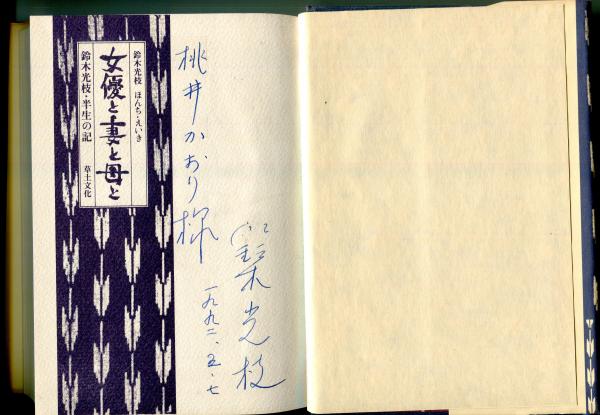 桃井かおり様
鈴木光枝
一九九二、五、七
鈴木光枝 ほんち・えいき
女優と妻と母と
鈴木光枝・半生の記
草土文化